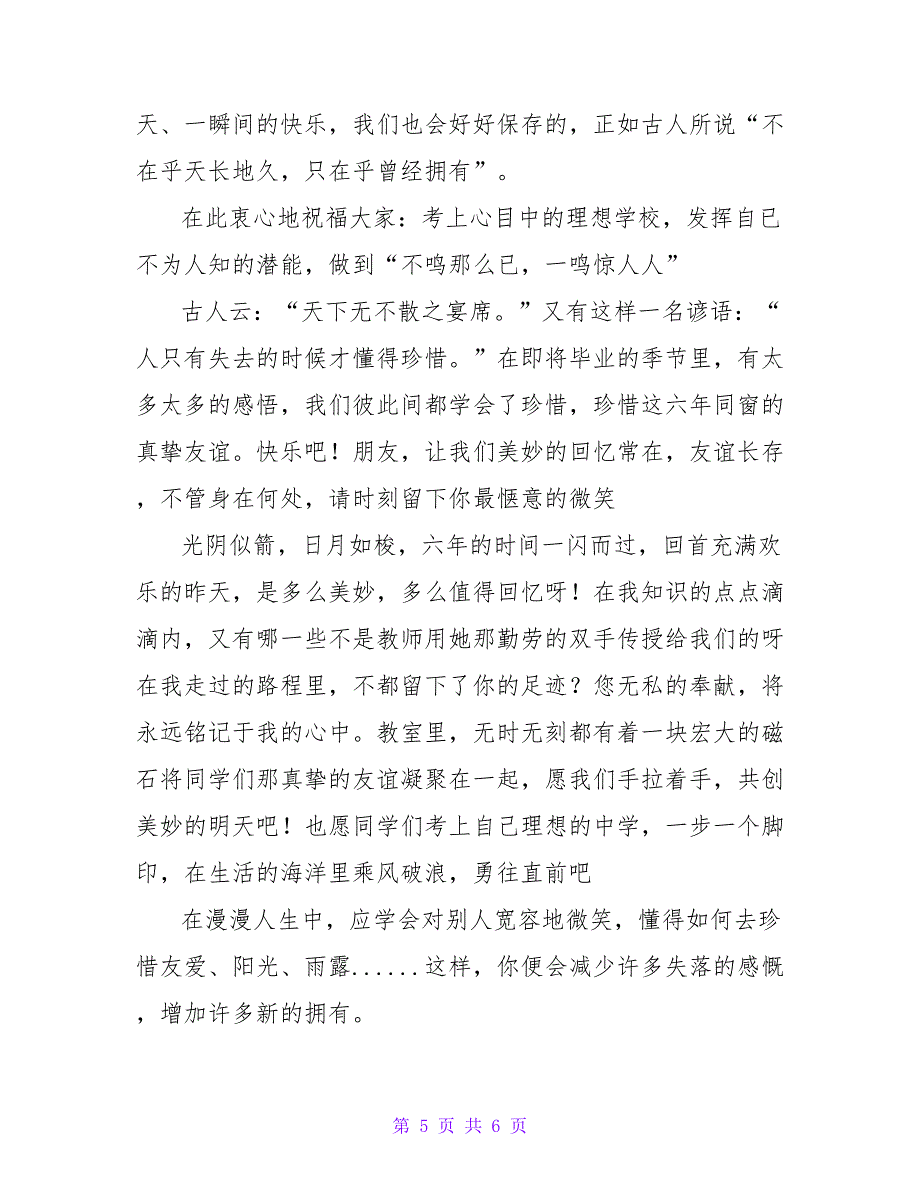 天、一瞬间的快乐，我们也会好好保存的，正如古人所说“不
在乎天长地久，只在乎曾经拥有”。
在此衷心地祝福大家：考上心目中的理想学校，发挥自己
不为人知的潜能，做到“不鸣那么已，一鸣惊人人”
古人云：“天下无不散之宴席。”又有这样一名谚语：“
人只有失去的时候才懂得珍惜。”在即将毕业的季节里，有太
多太多的感悟，我们彼此间都学会了珍惜，珍惜这六年同窗的
真挚友谊。快乐吧！朋友，让我们美妙的回忆常在，友谊长存
，不管身在何处，请时刻留下你最惬意的微笑
光阴似箭，日月如梭，六年的时间一闪而过，回首充满欢
乐的昨天，是多么美妙，多么值得回忆呀！在我知识的点点滴
滴内，又有哪一些不是教师用她那勤劳的双手传授给我们的呀
在我走过的路程里，不都留下了你的足迹？您无私的奉献，将
永远铭记于我的心中。教室里，无时无刻都有着一块宏大的磁
石将同学们那真挚的友谊凝聚在一起，愿我们手拉着手，共创
美妙的明天吧！也愿同学们考上自己理想的中学，一步一个脚
印，在生活的海洋里乘风破浪，勇往直前吧
在漫漫人生中，应学会对别人宽容地微笑，懂得如何去珍
惜友爱、阳光、雨露......这样，你便会减少许多失落的感慨
，增加许多新的拥有。
第 5 页 共 6 页